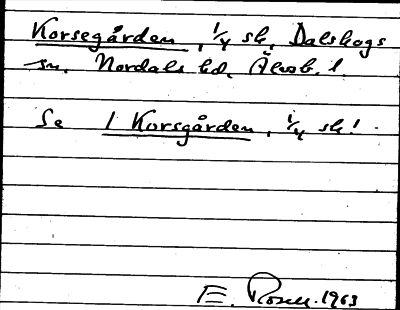 Korsegården, 1/4 sk, Dalskogs
sn. Nordals hd. Älvsb. l.
Se 1 Korsgården, 1/4 sk!
E. Rosell. 1963